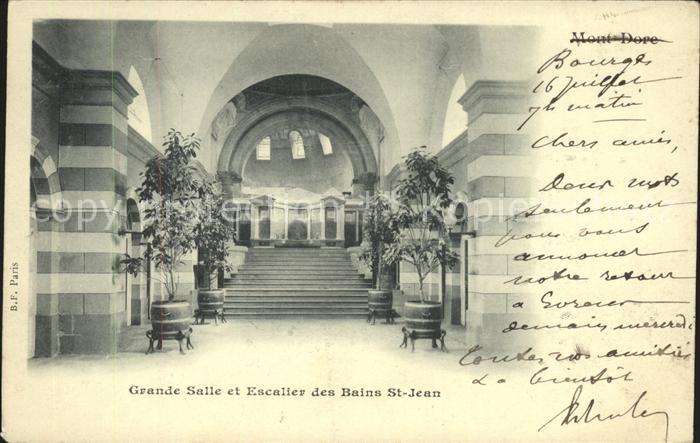 Mont-Dore
Bourges
16 juillet
7h matin
Chers amis,
Deux mots
seulement
pour vous
annoncer
notre retour
à Evreux
demain mercredi
Toutes nos amitiés
à bientôt
B.F. Paris
Grande Salle et Escalier des Bains St-Jean